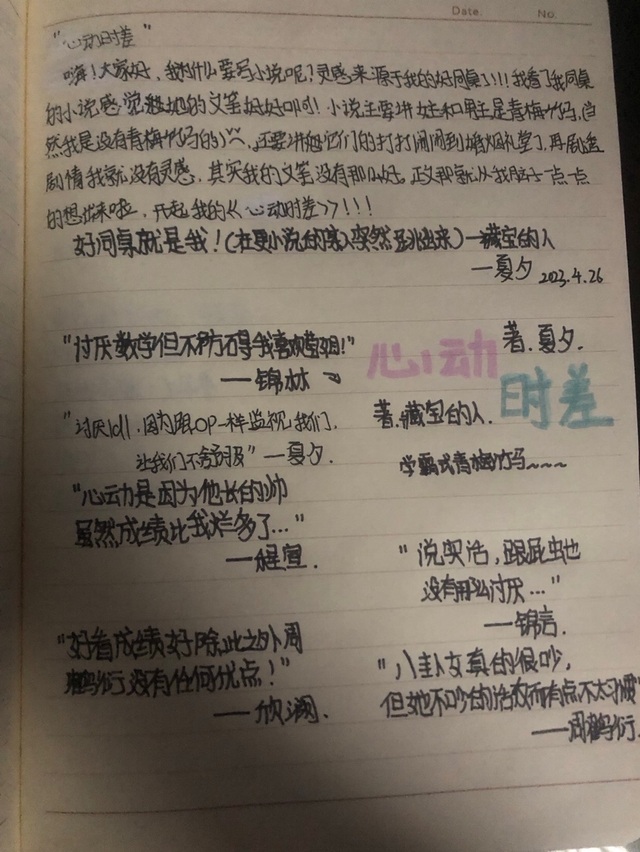 Date.  No.
"心动时差"
嗨!大家好,我为什么要写小说呢?灵感来源于我的好同桌!!!!我看了我同桌
的小说感觉她的文笔好好呀!小说主要讲女主和男主是青梅竹马,当
然我是没有青梅竹马的,还要讲他们的打打闹闹到婚姻礼堂了,再剧透
剧情我就没有灵感,其实我的文笔没有那么好。正文那就从我脑子一点一点
的想出来啦,开起我的《心动时差》!!!
好同桌就是我!(在更小说的亲人突然跳出来)—藏宝的人
—夏夕 2023.4.26
"讨厌数学但不妨碍我喜欢莹姐!"
——锦林
心动 著.夏夕.
时差
"讨厌1011,因为跟OP一样监视我们,
著.藏宝的人.
让我们不舒服" —夏夕.
学霸式青梅竹马~~~~
"心动是因为他长的帅
虽然成绩比我烂多了..."
——程宣.
"说实话,跟屁虫也
没有那么讨厌..."
——锦言.
"好看成绩好除此之外周
鹤衍没有任何优点!"
——欣澜.
"八卦女真的很吵,
但她不吵的话反而有点不太习惯"
——周鹤衍.